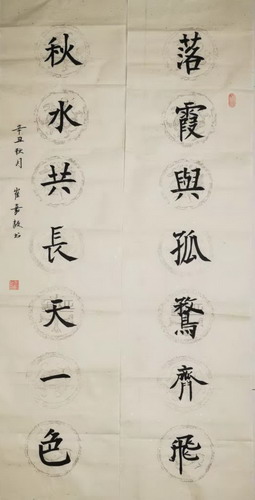 落霞與孤鶩齊飛
秋水共長天一色
辛丑秋月